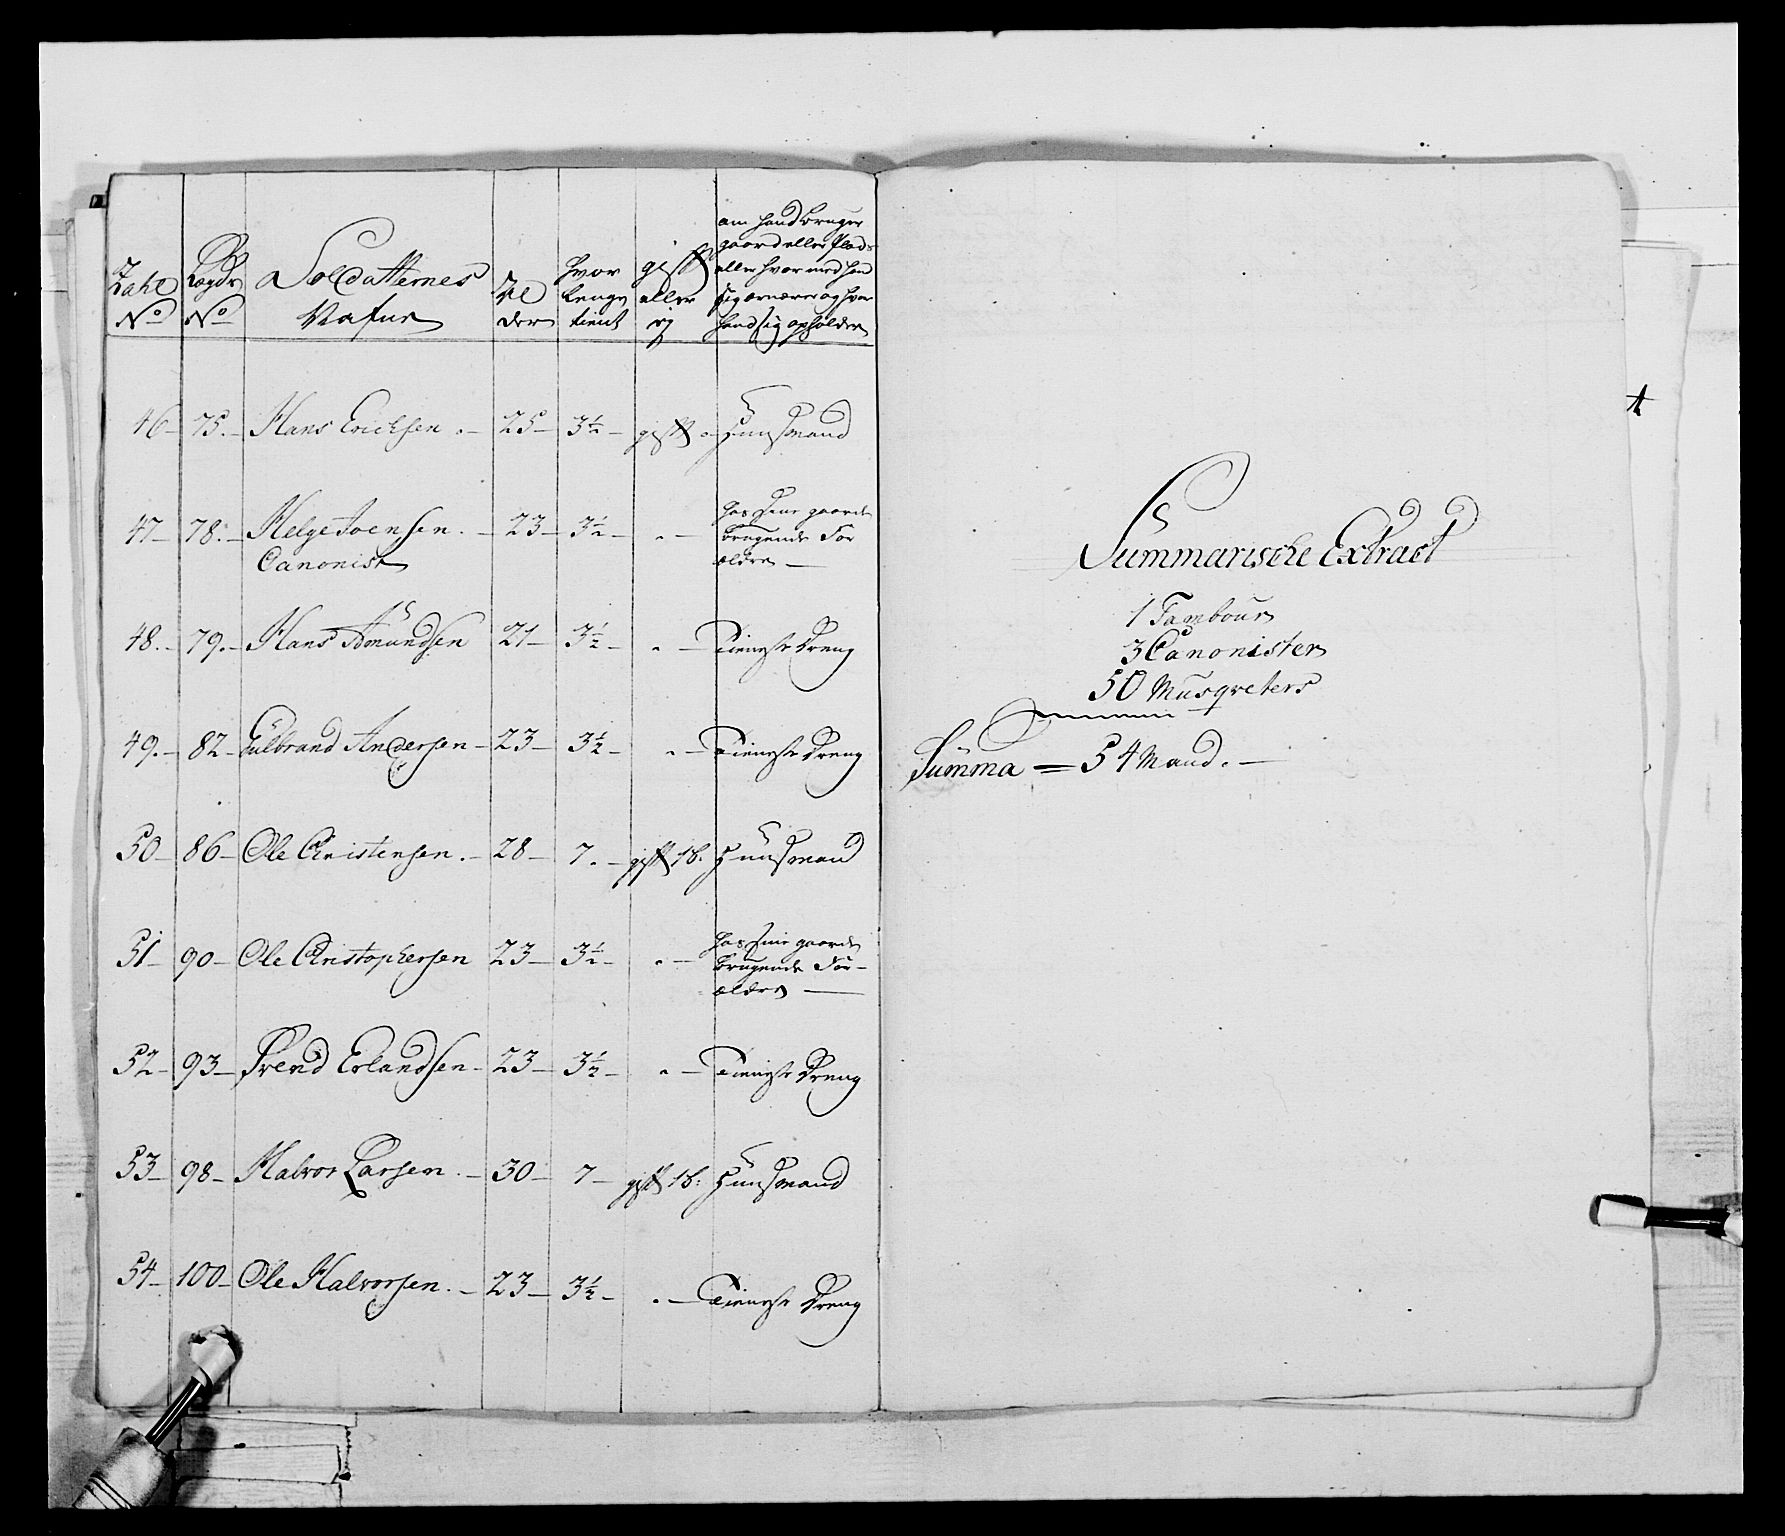 Zahl No | Lægds No | Soldatternes Nafne | Al der | hvor lenge tient | gift eller ej | om hand bruger gaard eller Plads eller hvor med hand sig ernærer og hvor hand sig opholder
46 – 75. – Hans Erichsen . – 25 – 3½ – gift . Huusmand
47 – 78. – Helge Joensen . – 23 – 3½ – . – hos sine gaard
Canonist brugende For
ældre —
48. – 79. – Hans Amundsen 21 – 3½ – . – Tieneste Dreng
49. – 82 – Gulbrand Andersen – 23 – 3½ – . – Tieneste Dreng
50 – 86 – Ole Christensen . – 28 – 7. – gift 1b. Huusmand
51 – 90 – Ole Christophersen 23 – 3½ – . – hos sine gaard
brugende For–
ældre —
52 – 93 – Svend Erlandsen – 23 – 3½ – . – Tieneste Dreng
53 – 98 – Halvor Larsen . – 30 – 7 – gift 1b. Huusmand
54 – 100 – Ole Halvorsen . – 23 – 3½ – . – Tieneste Dreng
Summarische Extract
1 Tambour
3 Canonister
50 Musqveters
Summa = 54 Mand . —